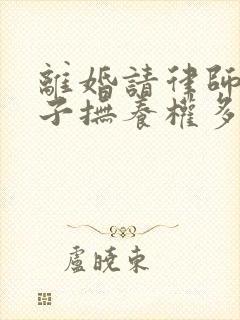 離婚請律師
子撫養權多
盧曉東